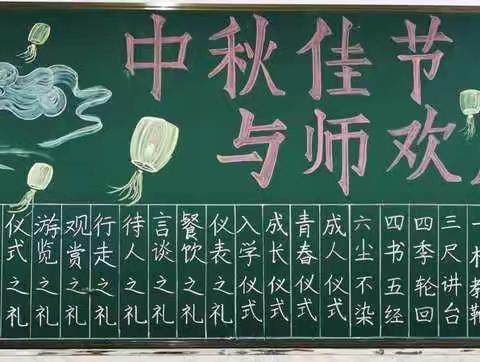 中秋佳节
与师欢
一根教鞭
三尺讲台
四季轮回
四书五经
六尘不染
成人仪式
青春仪式
成长仪式
入学仪式
仪表之礼
餐饮之礼
言谈之礼
待人之礼
行走之礼
观赏之礼
游览之礼
仪式之礼